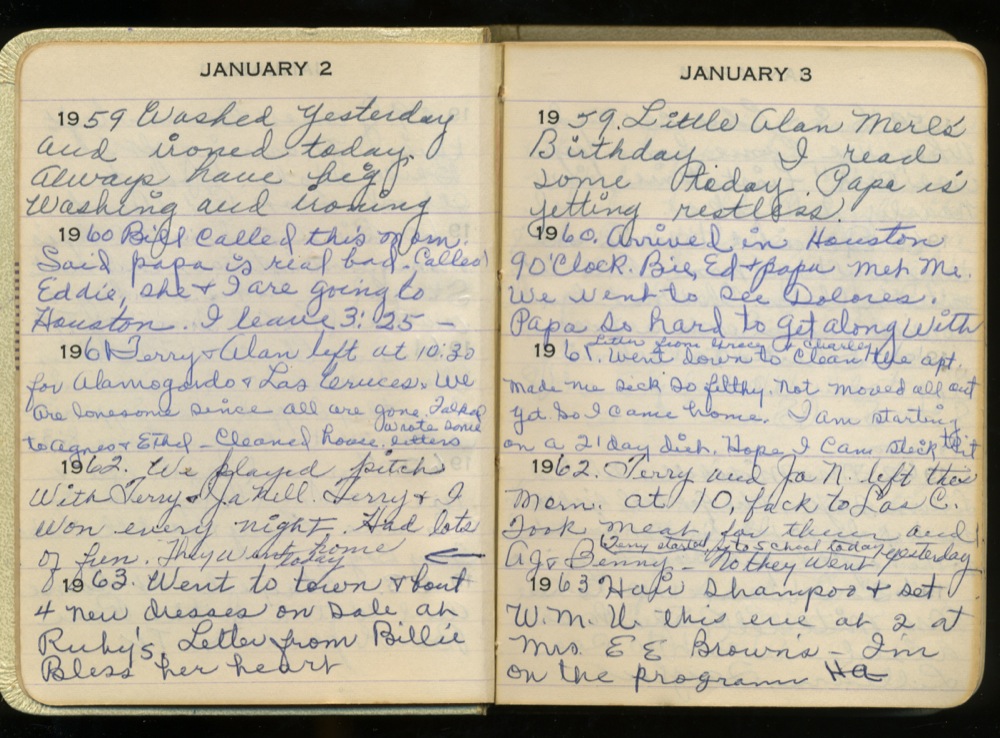 JANUARY 2
1959 Washed Yesterday
and ironed today.
Always have big
Washing and ironing
1960 Bill called this a.m.
Said papa is real bad. Called
Eddie, she + I are going to
Houston. I leave 3:25 –
1961 Terry + Alan left at 10:30
for Alamogordo + Las Cruces. We
are lonesome since all are gone. Talked
wrote some
to Agnes + Ethel – Cleaned house. letters
1962. We played pitch
With Terry + Ja Nell. Terry + I
won every night. Had lots
of fun. They went home
today
1963. Went to town + bout
4 new dresses on sale at
Ruby's. Letter from Billie
Bless her heart
JANUARY 3
1959. Little Alan Merle's
Birthday I read
some today. Papa is
getting restless.
1960. Arrived in Houston
9 O'Clock. Bill, Ed + papa met me.
We went to see Dolores.
Papa so hard to get along With
Letter from Grace + Charley
1961. Went down to clean the apt.
made me sick so filthy. Not moved all out
yet so I came home. I am starting
on a 21 day diet. Hope I can stick to it
1962. Terry and Ja N. left this
Morn. at 10, back to Las C.
Took meat for them and
Terry started to school today
AJ + Benny – No they went yesterday
1963 Hair shampoo + set
W.M.U. this eve at 2 at
Mrs. E E Brown's – I'm
on the program Ha